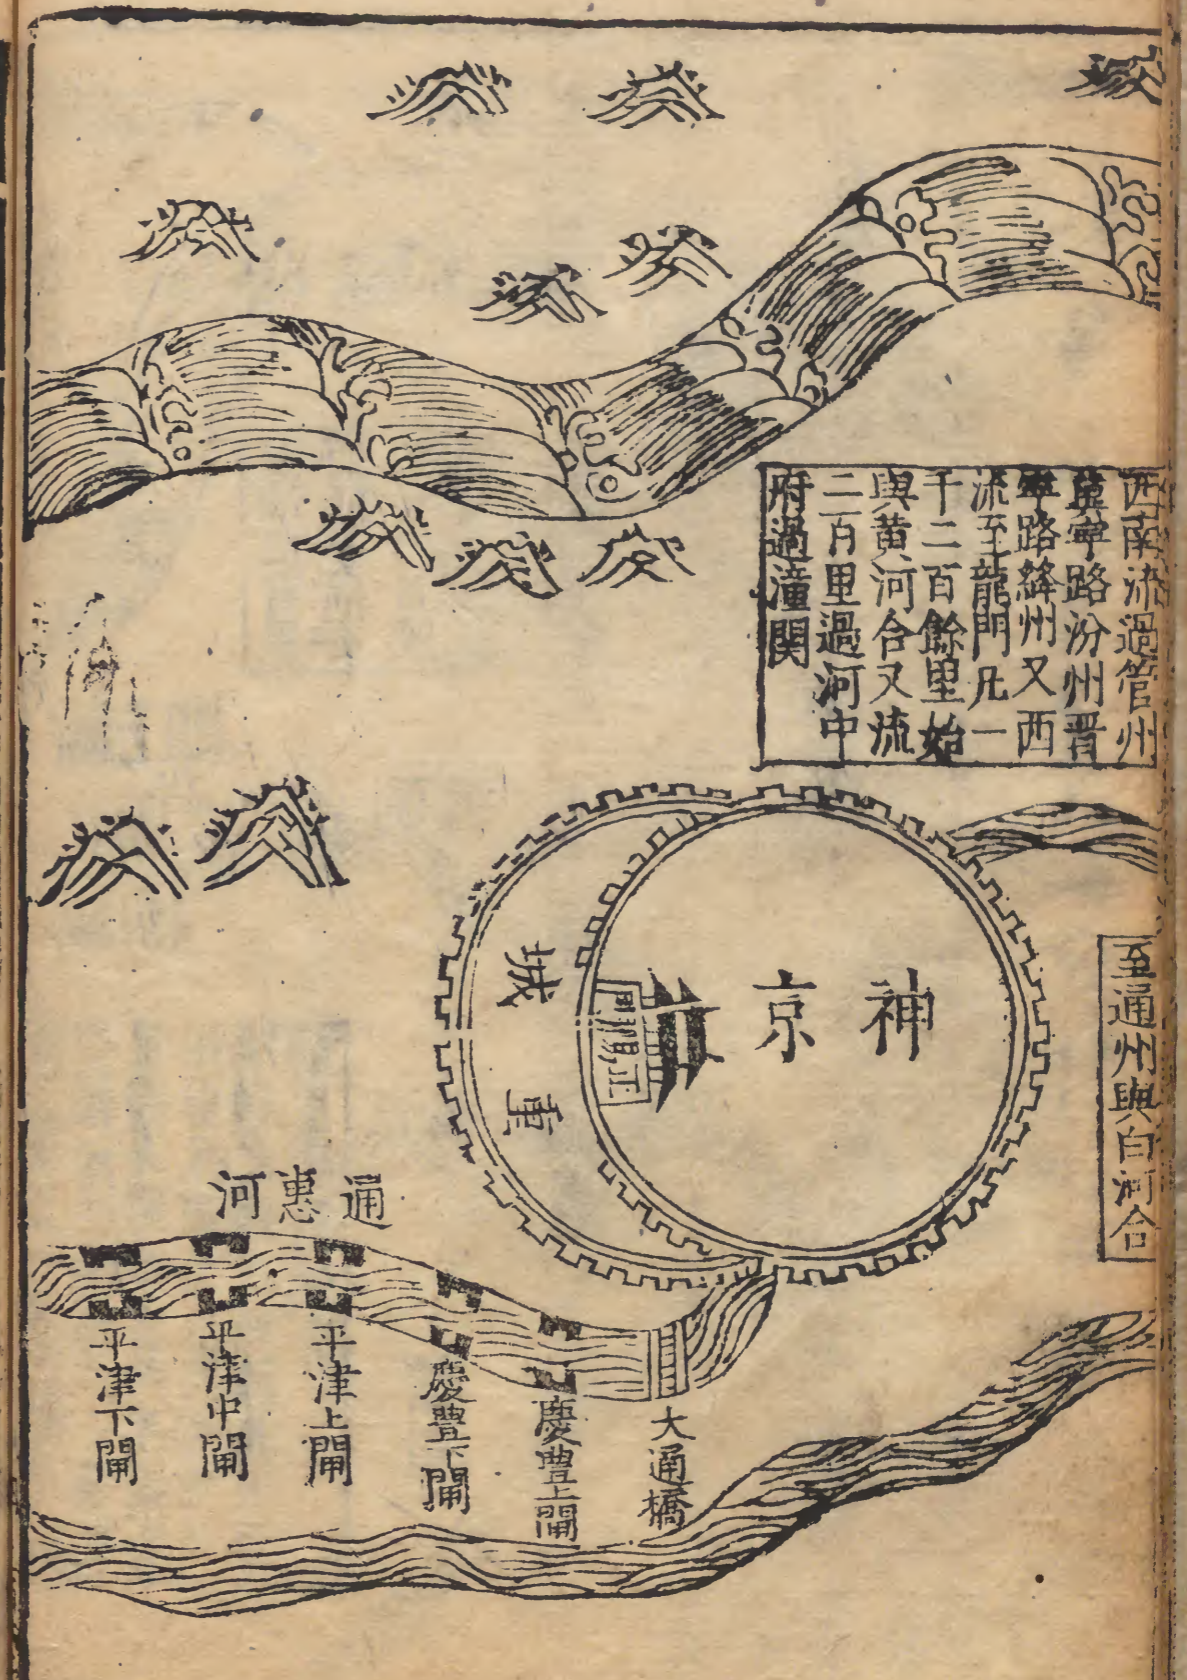 西南流過管州
冀寧路汾州晋
寧路絳州又西
流至龍門凡一
千二百餘里始
與黄河合又流
二百里過河中
府過潼関
至通州與白河合
神京
正陽門
重城
通惠河
大通橋
慶豊上閘
慶豊下閘
平津上閘
平津中閘
平津下閘